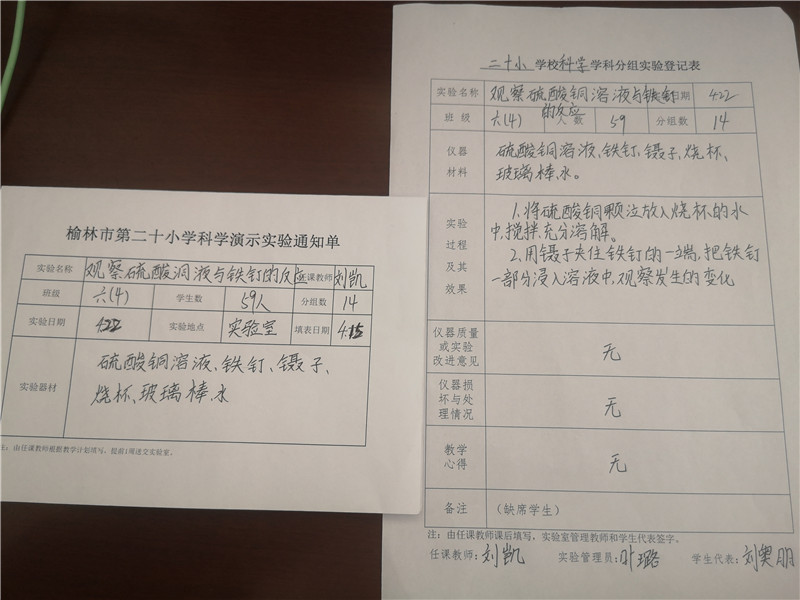 榆林市第二十小学科学演示实验通知单
实验名称 观察硫酸洞液与铁钉的反应 任课教师 刘凯
班级 六(4) 学生数 59人 分组数 14
实验日期 4.22 实验地点 实验室 填表日期 4.15
实验器材 硫酸铜溶液、铁钉、镊子、
烧杯、玻璃棒、水
注：由任课教师根据教学计划填写，提前1周送交实验室。
二十小 学校 科学 学科分组实验登记表
实验名称 观察硫酸铜溶液与铁钉的反应 日期 4.22
班级 六(4) 人数 59 分组数 14
仪器材料 硫酸铜溶液、铁钉、镊子、烧杯、
玻璃棒、水。
实验过程及其效果
1.将硫酸铜颗粒放入烧杯的水
中,搅拌,充分溶解。
2.用镊子夹住铁钉的一端,把铁钉
一部分浸入溶液中,观察发生的变化
仪器质量或实验改进意见 无
仪器损坏与处理情况 无
教学心得 无
备注 (缺席学生)
注：由任课教师课后填写，实验室管理教师和学生代表签字。
任课教师：刘凯 实验管理员：叶璐 学生代表：刘奥朋